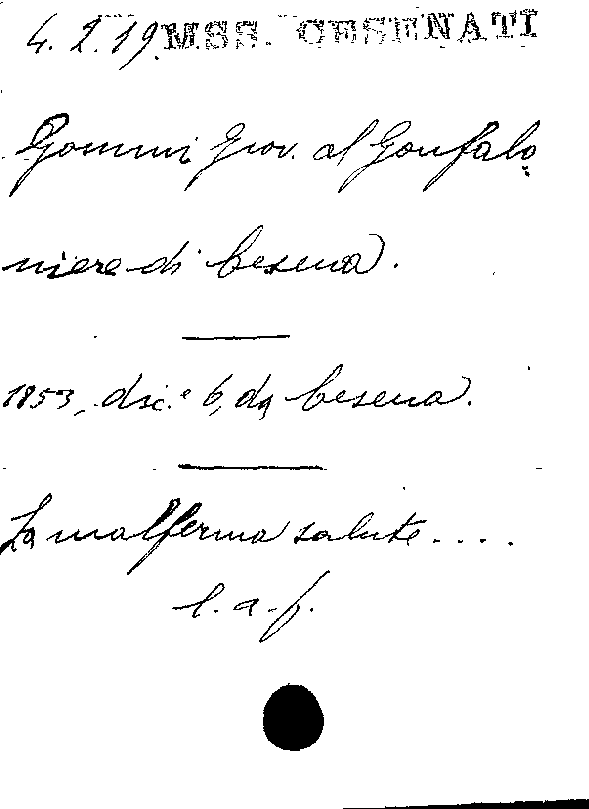 4.2.19 MSS. CESENATI
Gommi Giov. al Gonfalo
niere di Cesena.
1853, dic.e 6, da Cesena.
La malferma salute....
l. a. f.